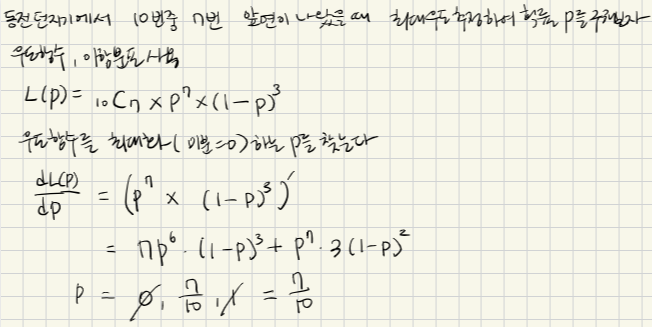 동전던지기에서 10번중 7번 앞면이 나왔을때 최대우도추정하여 확률 p를 구해보자
우도함수, 이항분포사용
L(p) = ₁₀C₇ × p⁷ × (1-p)³
우도함수를 최대화(미분=0)하는 p를 찾는다
dL(p)/dp = (p⁷ × (1-p)³)′
= 7p⁶ · (1-p)³ + p⁷ · 3(1-p)²
p = 0, 7/10, 1 = 7/10